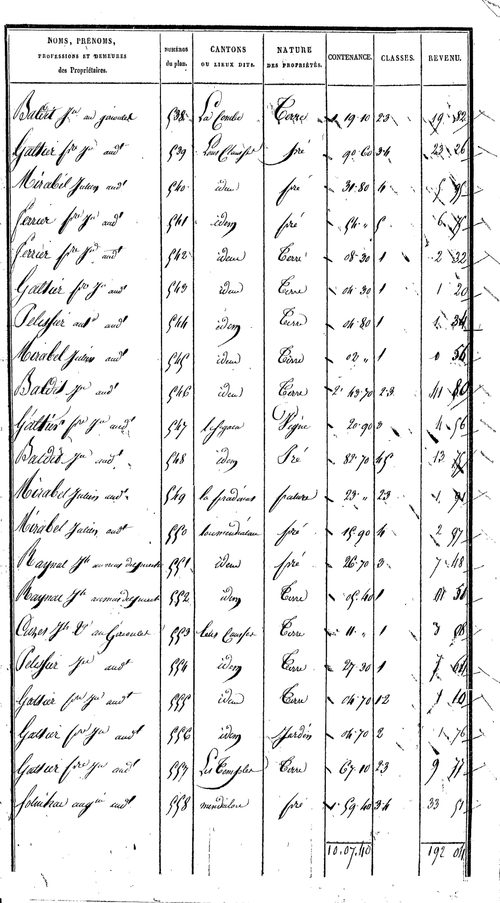 NOMS, PRÉNOMS, PROFESSIONS ET DEMEURES des Propriétaires. NUMÉROS du plan. CANTONS OU LIEUX DITS. NATURE DES PROPRIÉTÉS. CONTENANCE. CLASSES. REVENU.
Baldit Jn au 538 La Combe Terre 19.10 23 19 82
Galtier fs Jn audt 539 Lous Clausses pré 90.60 34 23 26
Mirabel Julien audt 540 idem pré 31.80 4 5 95
Ferrier fs Jn audt 541 idem pré 54 " 5 6 75
Ferrier fs Jn audt 542 idem Terre 08.30 1 2 32
Galtier fs Jn audt 543 idem Terre 04.30 1 1 20
Pelissier ante audt 544 idem Terre 04.80 1 1 34
Mirabel Julien audt 545 idem Terre 02 " 1 0 56
Baldit Jn audt 546 idem Terre 2.43.70 23 41 80
Galtier fs Jn audt 547 Vigne 20.90 3 4 56
Baldit Jn audt 548 idem Pré 82.70 45 13 75
Mirabel Julien audt 549 pature 23 " 23 1 91
Mirabel Julien audt 550 pré 15.90 4 2 97
Raynal Jh au mas 551 idem pré 26.70 3 7 48
Raynal Jh au mas 552 idem Terre 05.40 1 1 51
Jh 553 Lous Causses Terre 11 " 1 3 08
Pelissier Jn audt 554 idem Terre 27.30 1 7 64
Galtier fs Jn audt 555 idem Terre 04.70 12 1 10
Galtier fs Jn audt 556 idem Jardin 04.70 2 1 76
Galtier fs Jn audt 557 Les Temples Terre 67.10 23 9 77
audt 558 pré 1.59.40 34 33 51
10.07.40 192 04